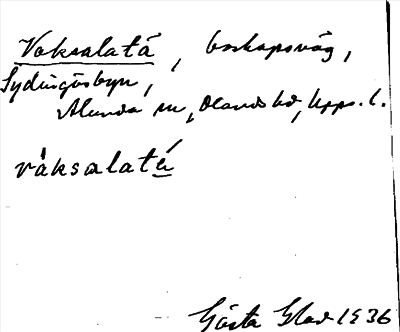 Vaksalatå, boskapsväg,
Sydingsbyn,
Alunda sn, Olands hd, Upps. l.
vàksalaté
Gösta Glad 1936